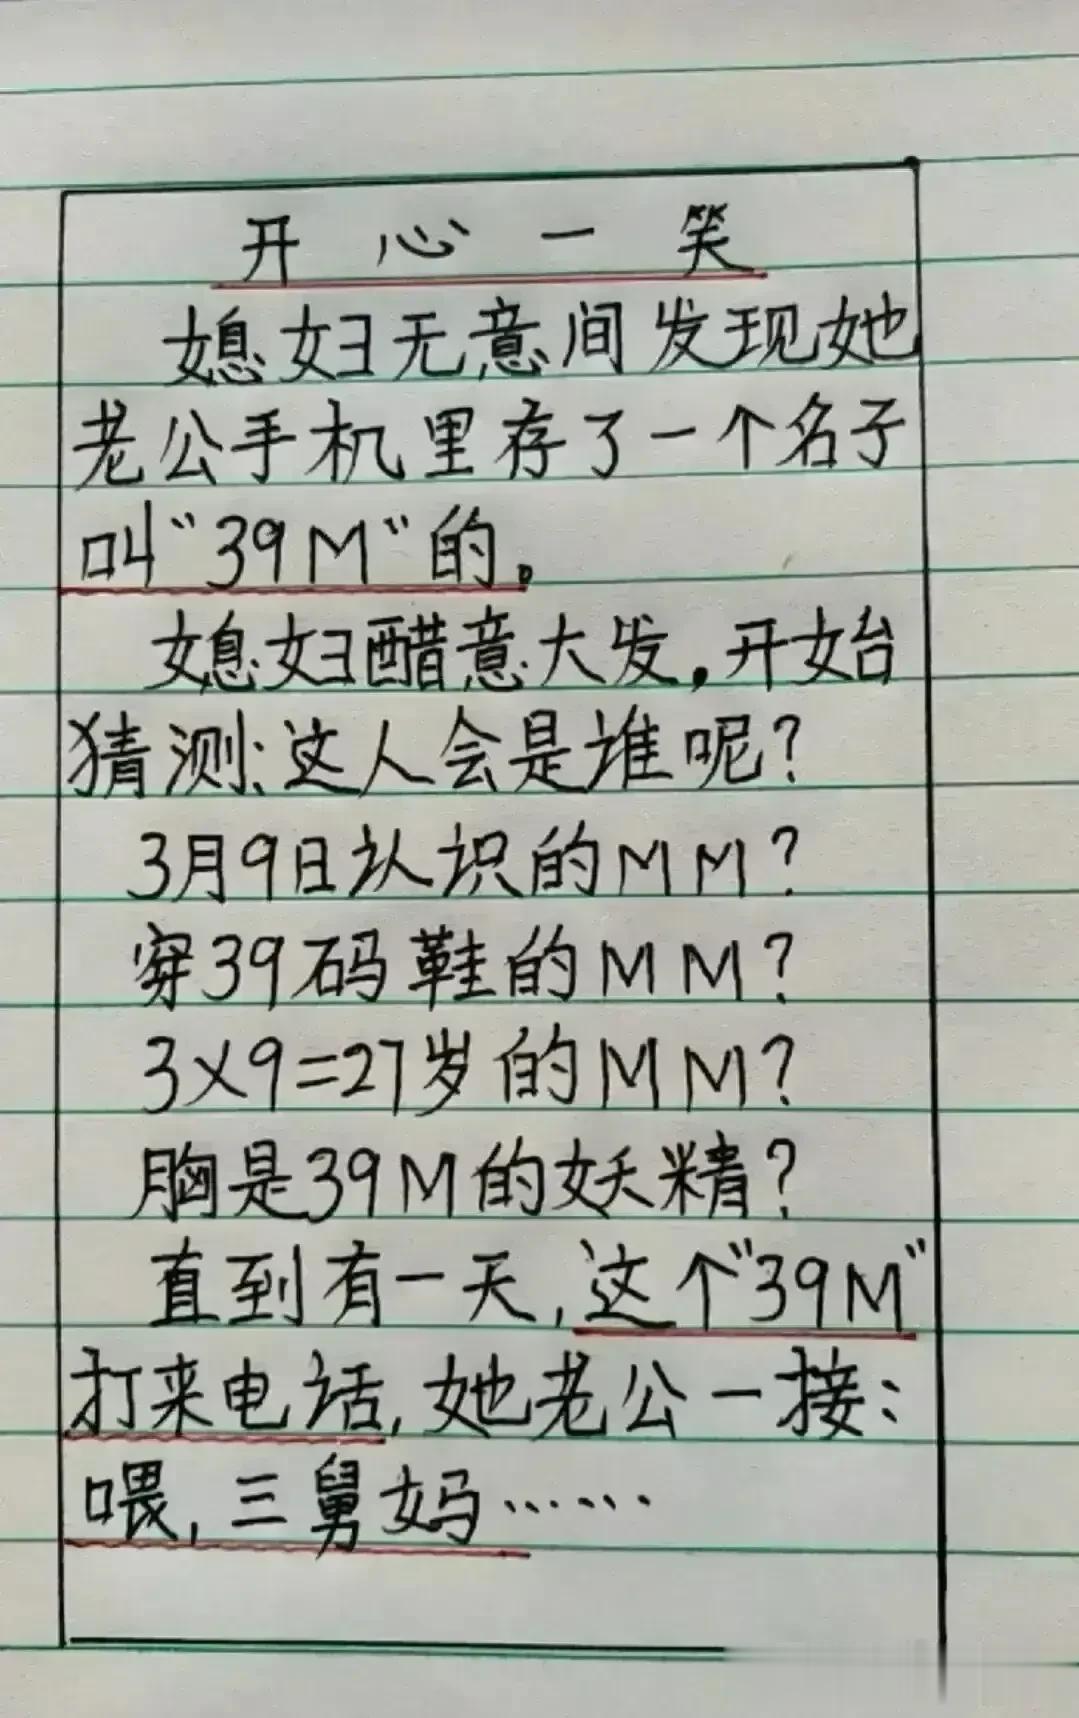 开心一笑
媳妇无意间发现她
老公手机里存了一个名子
叫“39M“的。
媳妇醋意大发,开始
猜测:这人会是谁呢?
3月9日认识的MM?
穿39码鞋的MM?
3×9=27岁的MM?
胸是39M的妖精?
直到有一天,这个“39M”
打来电话,她老公一接:
喂,三舅妈……